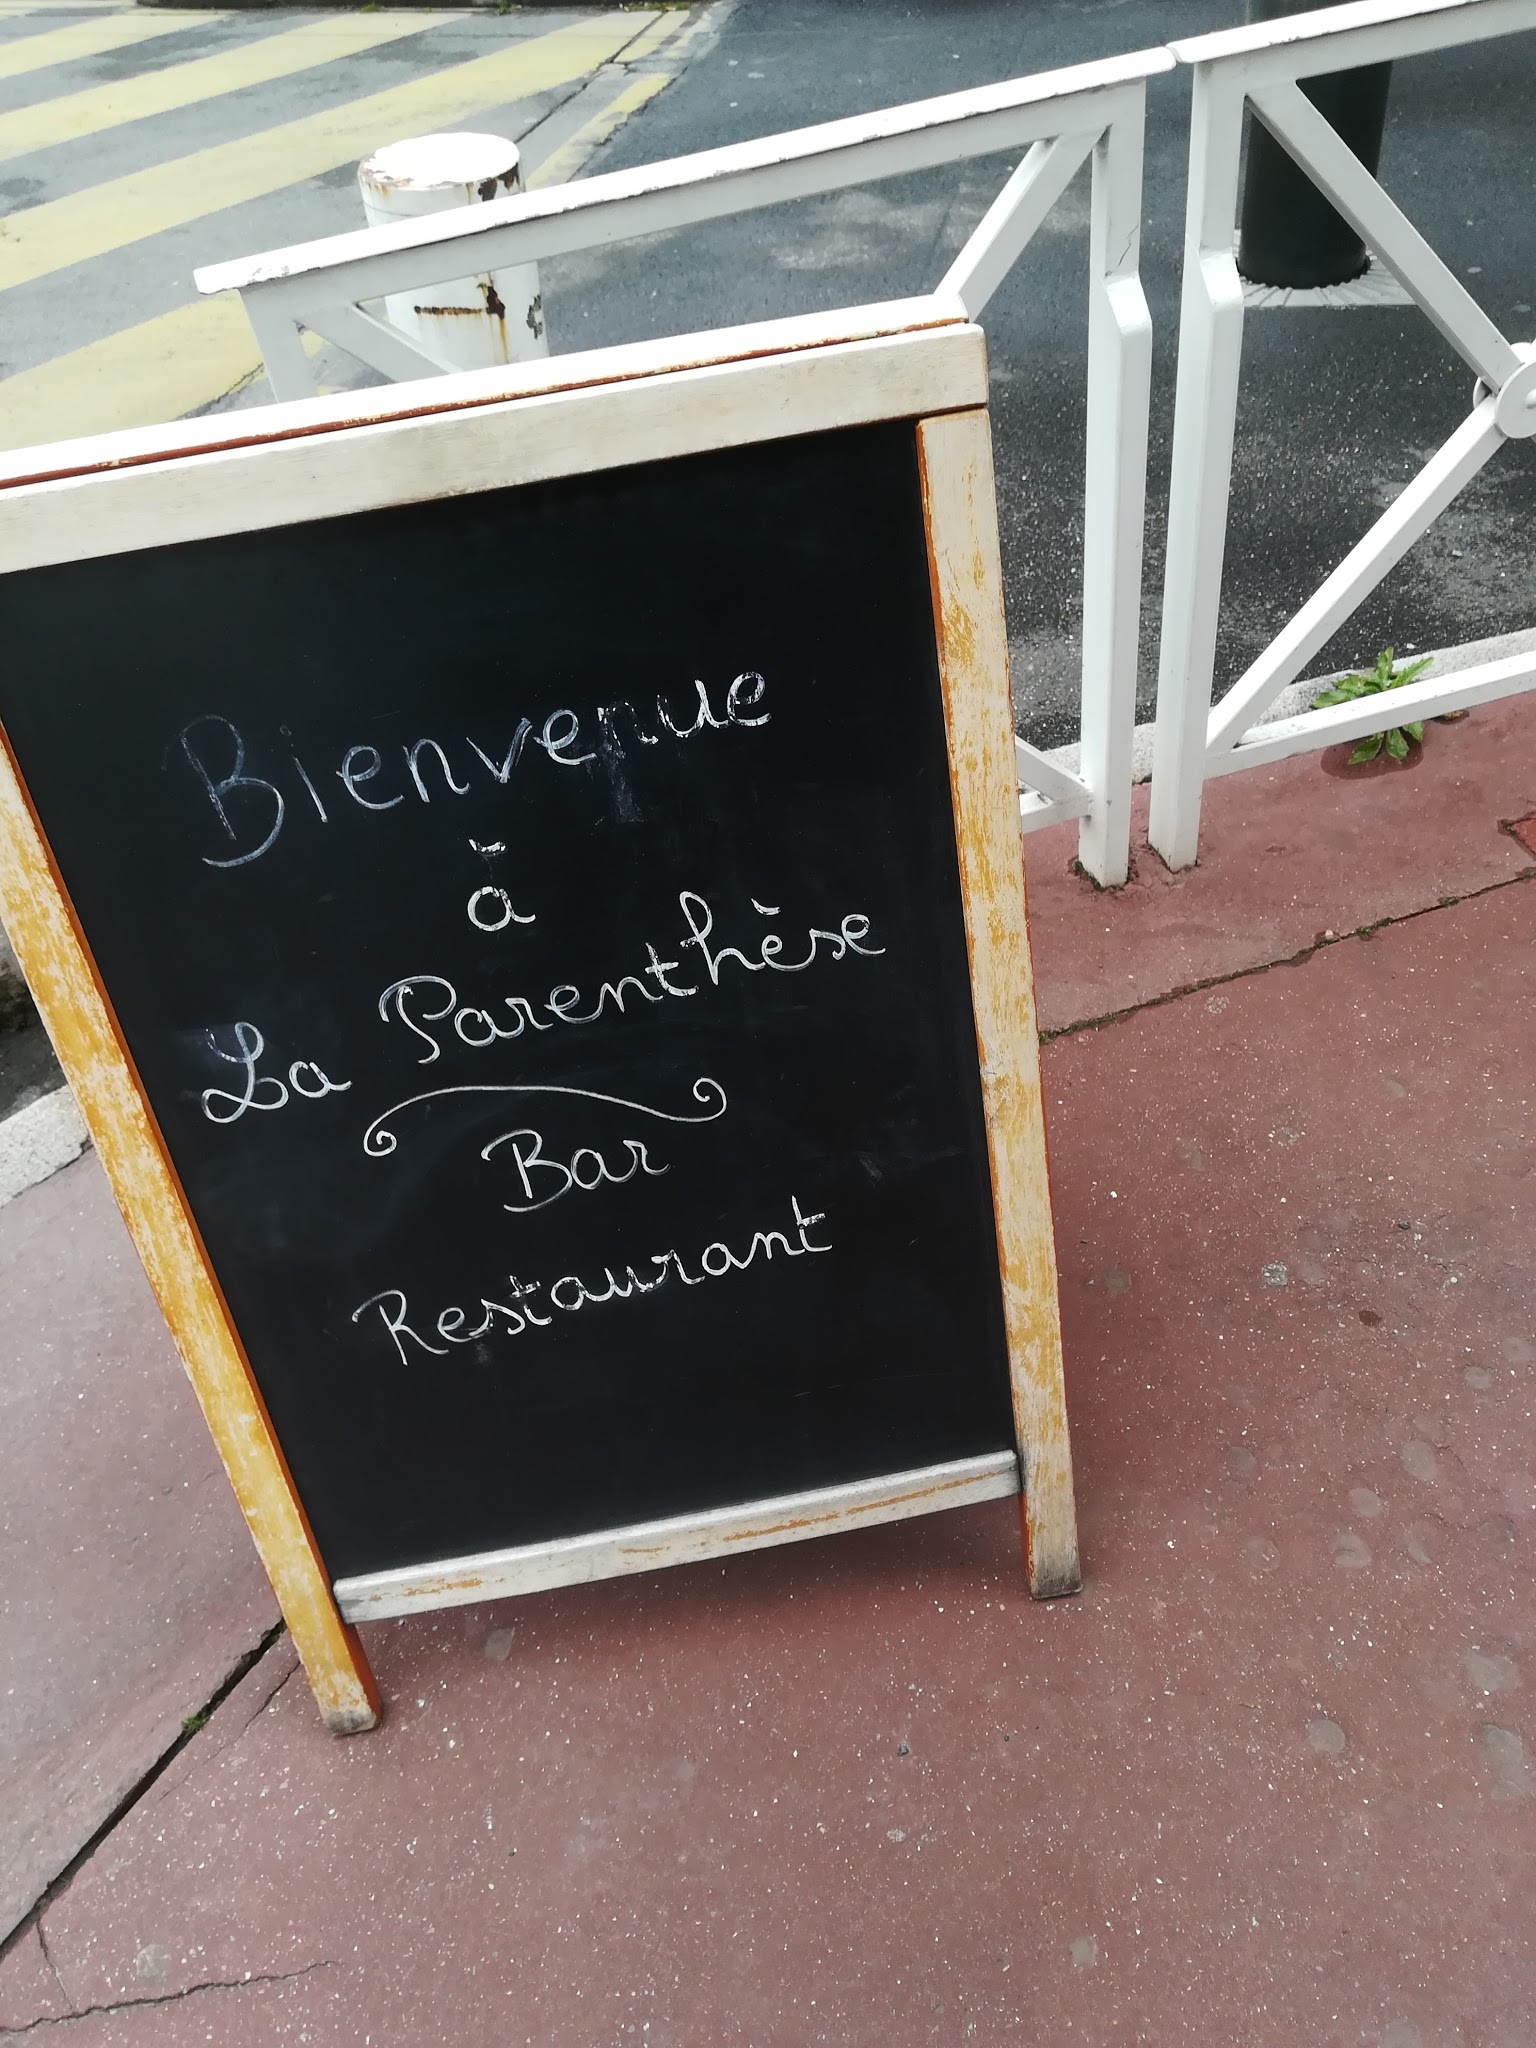 Bienvenue
à
La Parenthèse
Bar
Restaurant